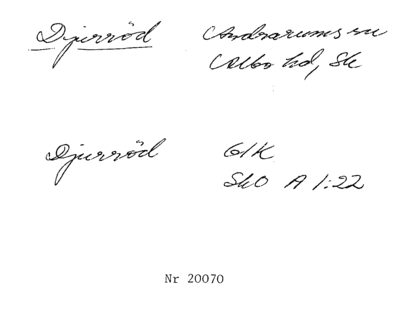 Djurröd Andrarums sn
Albo hd, Sk
Djurröd 61K
SkO A 1:22
Nr 20070